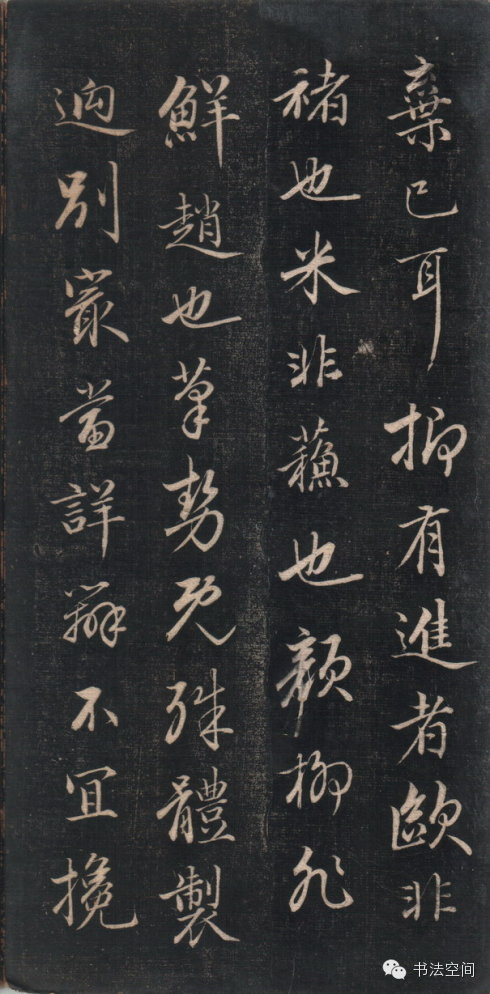 棄已耳抑有進者歐非
褚也米非蘓也顏柳非
鮮趙也筆勢既殊體製
逈別㝡當詳辯不宜攙
书法空间